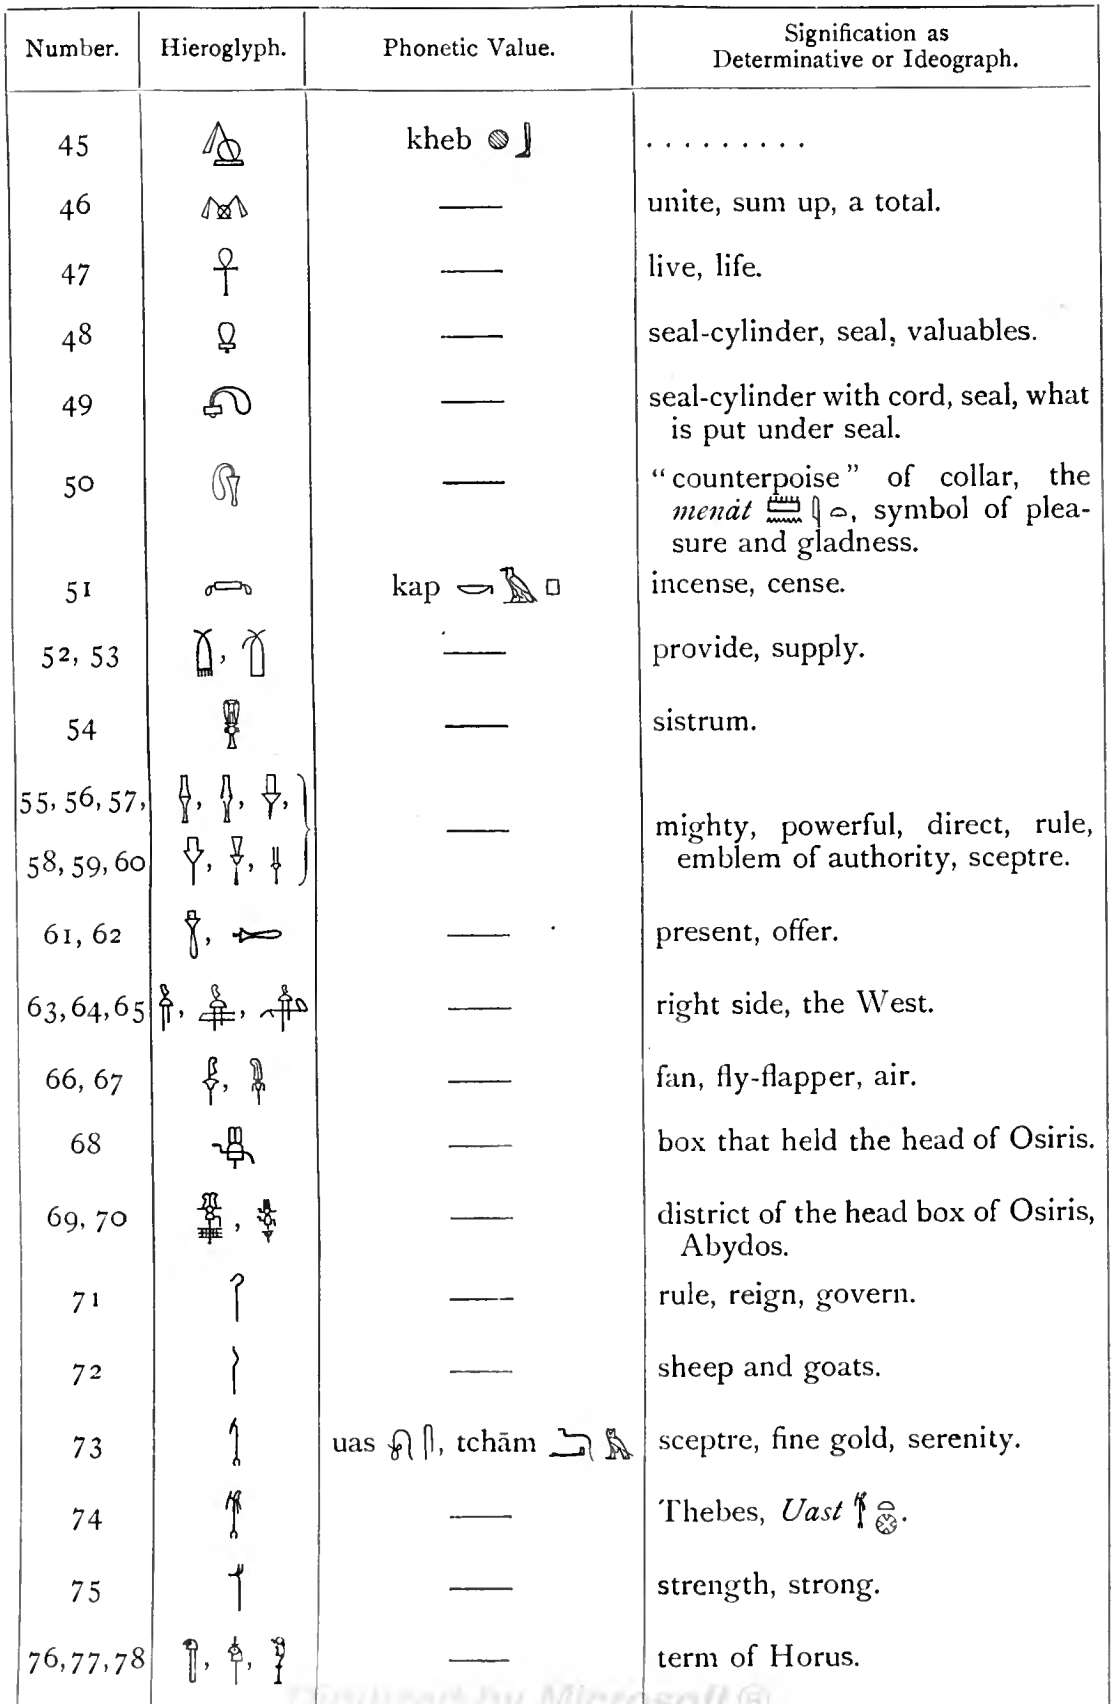 Number. Hieroglyph. Phonetic Value. Signification as
Determinative or Ideograph.
45 kheb 𓐍𓃀 . . . . . . . . .
46 —— unite, sum up, a total.
47 𓋹 —— live, life.
48 —— seal-cylinder, seal, valuables.
49 —— seal-cylinder with cord, seal, what
is put under seal.
50 —— “counterpoise” of collar, the
menȧt 𓏠𓈖𓇋𓏏, symbol of plea-
sure and gladness.
51 kap 𓎡𓄿𓊪 incense, cense.
52, 53 —— provide, supply.
54 —— sistrum.
55, 56, 57,
58, 59, 60 —— mighty, powerful, direct, rule,
emblem of authority, sceptre.
61, 62 —— present, offer.
63, 64, 65 —— right side, the West.
66, 67 —— fan, fly-flapper, air.
68 —— box that held the head of Osiris.
69, 70 —— district of the head box of Osiris,
Abydos.
71 𓋾 —— rule, reign, govern.
72 —— sheep and goats.
73 𓌀 uas 𓍯𓋴, tchām 𓆓𓅓 sceptre, fine gold, serenity.
74 𓌁 —— Thebes, Uast 𓌁𓏏𓊖.
75 —— strength, strong.
76, 77, 78 —— term of Horus.
Digitized by Microsoft ®